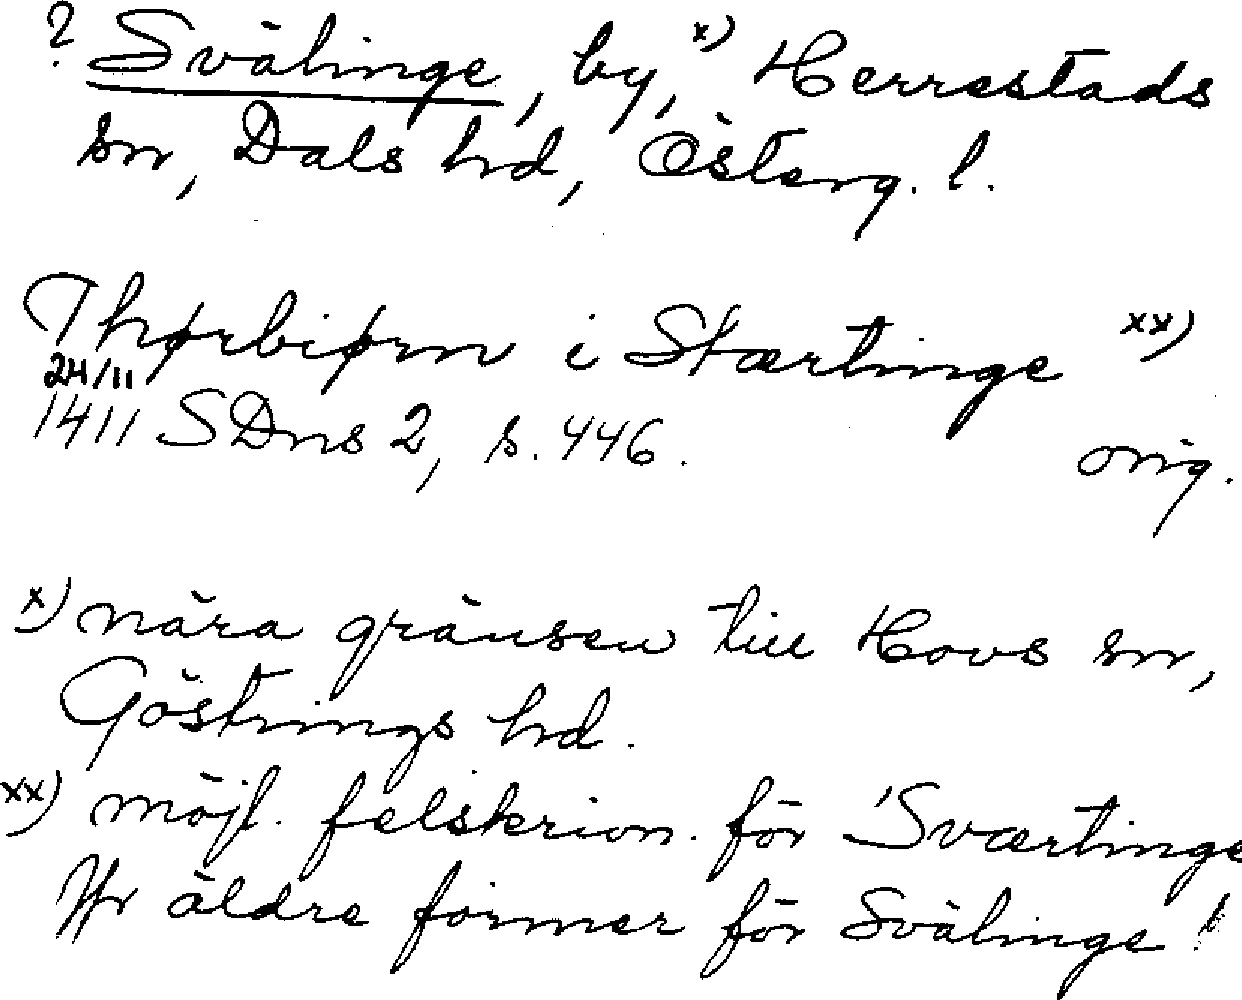 ? Svälinge, by, x) Herrestads
sn, Dals hd, Österg. l.
Thørbiørn i Stærtinge xx)
24/11
1411 SDns 2, s. 446.
orig.
x) nära gränsen till Hovs sn,
Göstrings hd.
xx) möjl. felskrivn. för 'Sværtinge
Jfr äldre former för Svälinge!